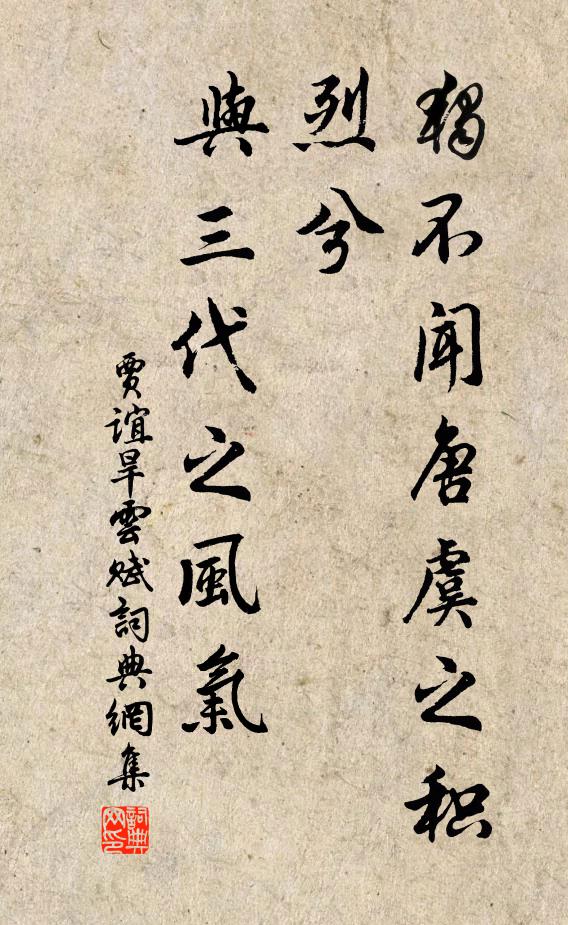 獨不聞唐虞之积
烈兮
與三代之風氣
賈誼旱雲賦詞典網集
詞典网印